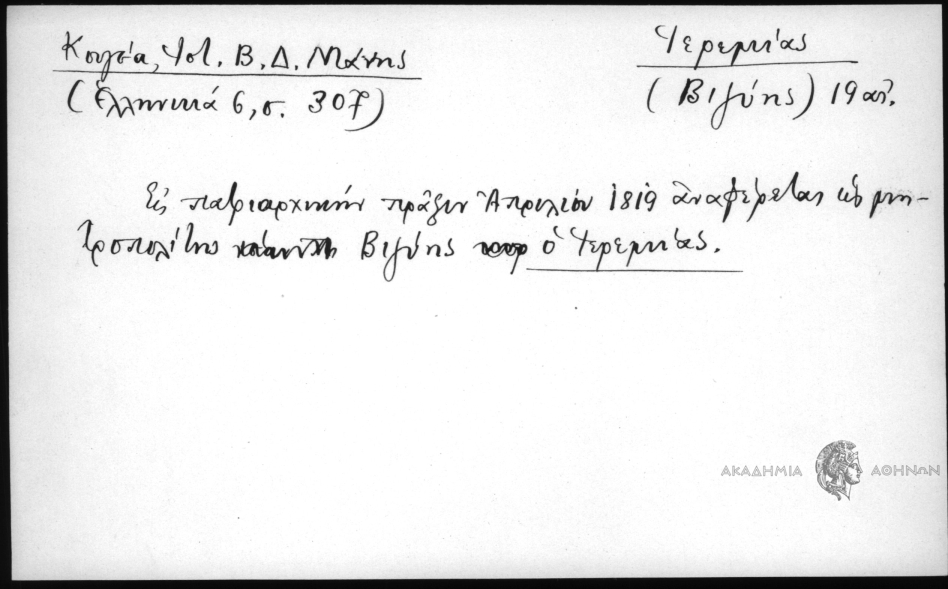 Κουγέα, Ἱστ. Β. Δ. Μάνης
(Ἑλληνικά 6, σ. 307)
Ἱερεμίας
(Βιζύης) 19 αἰ.
Εἰς πατριαρχικήν πρᾶξιν Ἀπριλίου 1819 ἀναφέρεται ὡς μη-
τροπολίτης Βιζύης ὁ Ἱερεμίας.
ΑΚΑΔΗΜΙΑ ΑΘΗΝΩΝ